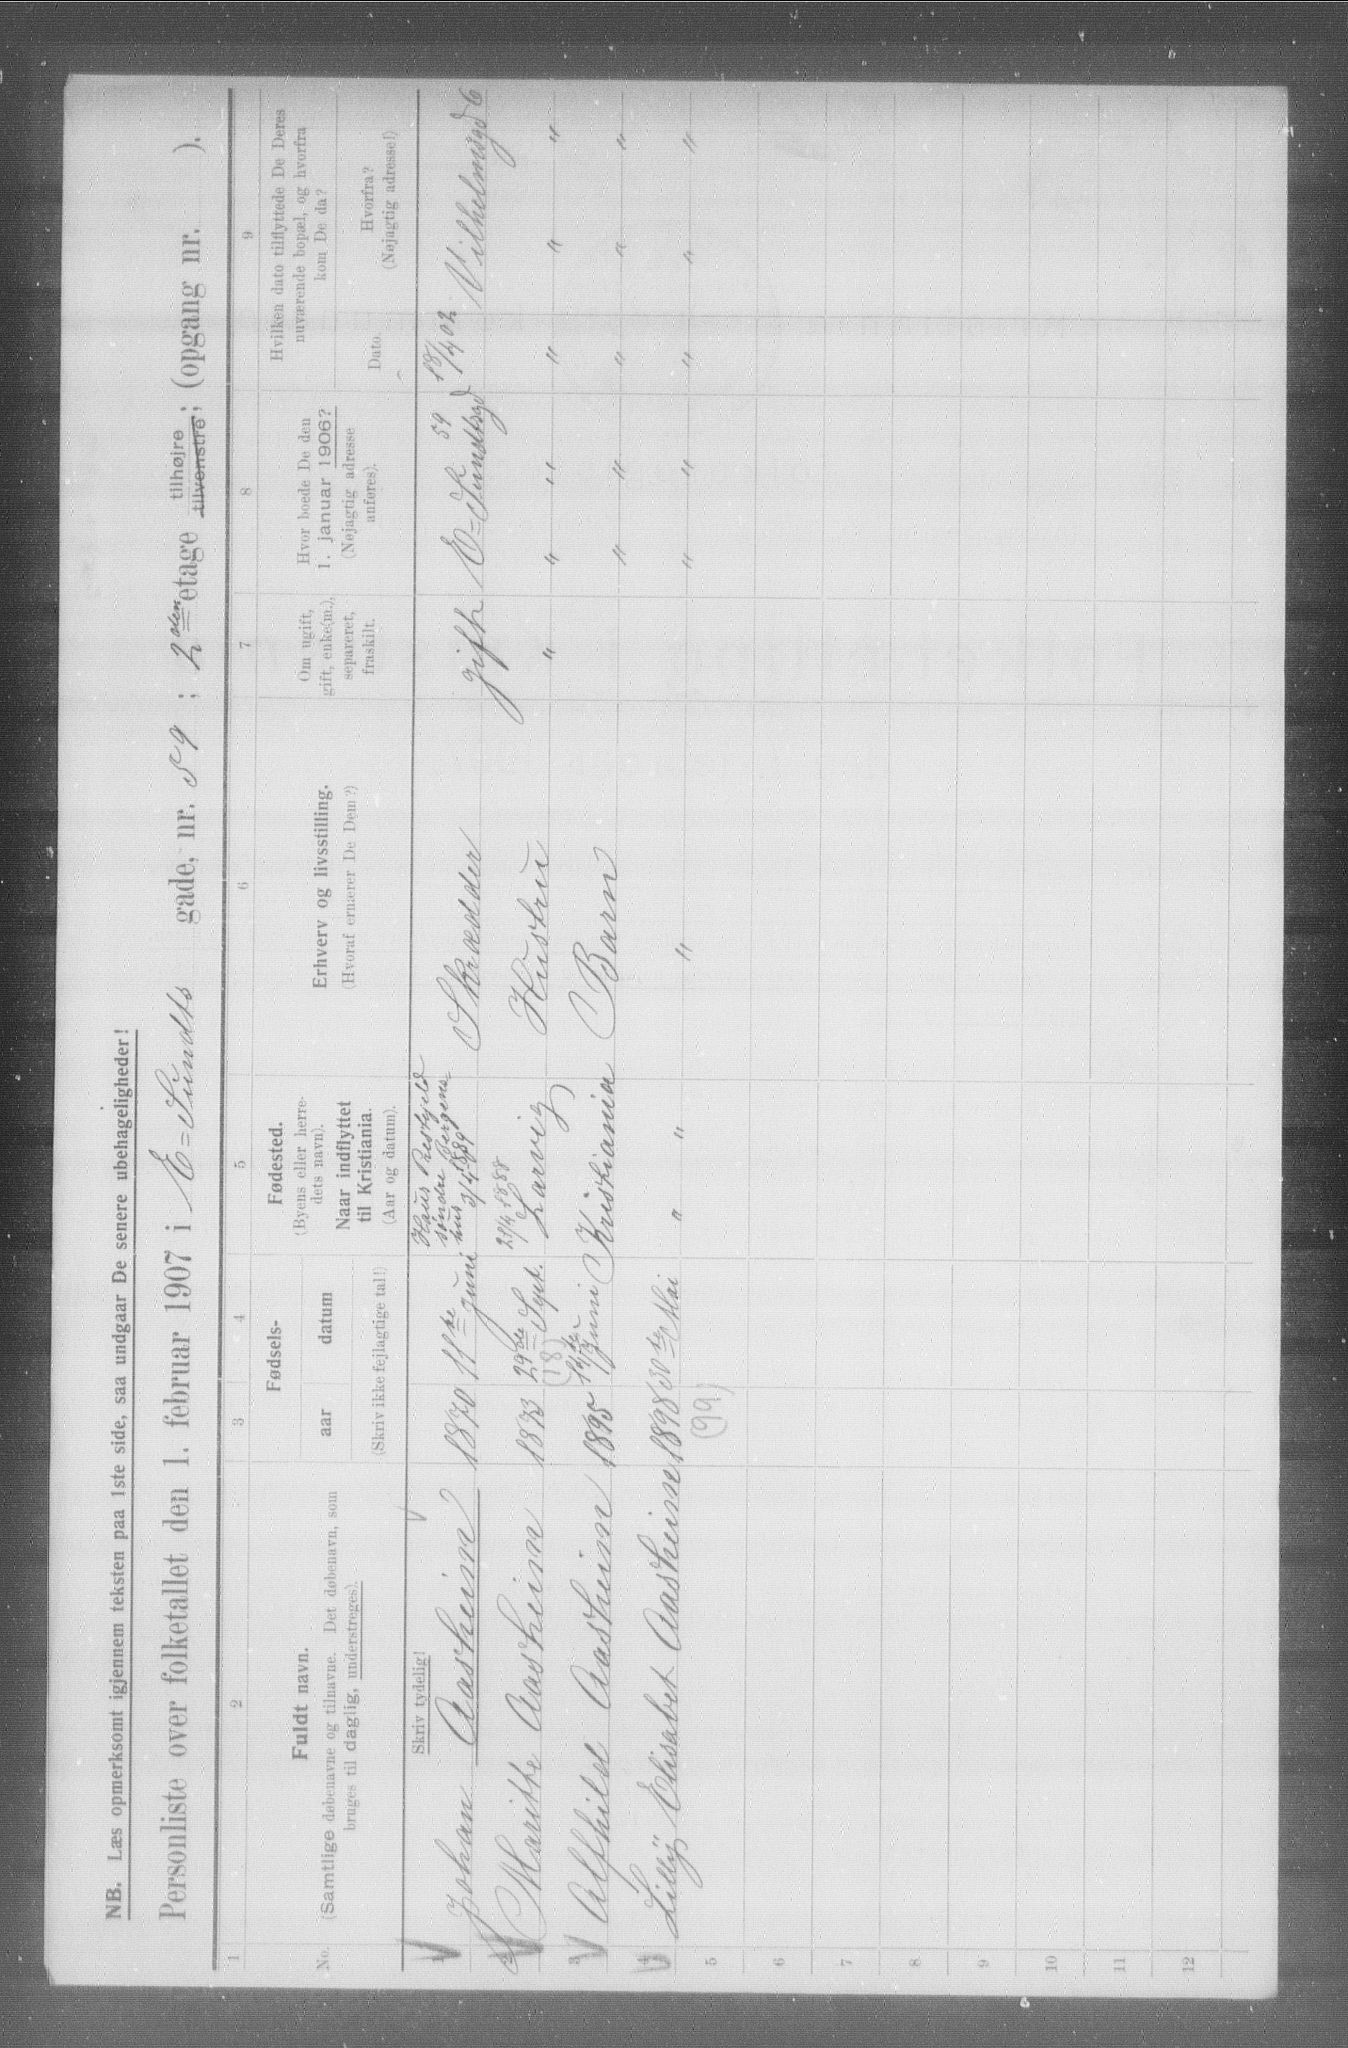 NB. Læs opmerksomt igjennem teksten paa 1ste side, saa undgaar De senere ubehageligheder!
Personliste over folketallet den 1. februar 1907 i E=Sundts gade, nr. 59; 2den etage tilhøjre tilvenstre; (opgang nr. ).
1 2 3 4 5 6 7 8 9
No.
Fuldt navn.
(Samtlige døbenavne og tilnavne. Det døbenavn, som
bruges til daglig, understreges).
Fødsels-
aar datum
(Skriv ikke fejlagtige tal!)
Fødested.
(Byens eller herre-
dets navn).
Naar indflyttet
til Kristiania.
(Aar og datum).
Erhverv og livsstilling.
(Hvoraf ernærer De Dem?)
Om ugift,
gift, enke(m.),
separeret,
fraskilt.
Hvor boede De den
1. januar 1906?
(Nøjagtig adresse
anføres).
Hvilken dato tilflyttede De Deres
nuværende bopæl, og hvorfra
kom De da?
Dato.
Hvorfra?
(Nøjagtig adresse!)
Skriv tydelig!
1 Johan Aasheim 1870 11te juni Haus Prestgjeld søndre Bergens= hus 3/4 1889 Skrædder gift E=Sundtsgd 59 18/4 02 Vilhelmsgd 6
2 Marithe Aasheim 1873 29de Sept. (18) 21/4 1888 Larvig Hustru " " " " " "
3 Alfhild Aasheim 1895 14de Juni Kristiania Barn " " " " "
4 Lilly Elisabet Aasheim 1898 30te Mai (99) " " " " " " " "
5
6
7
8
9
10
11
12